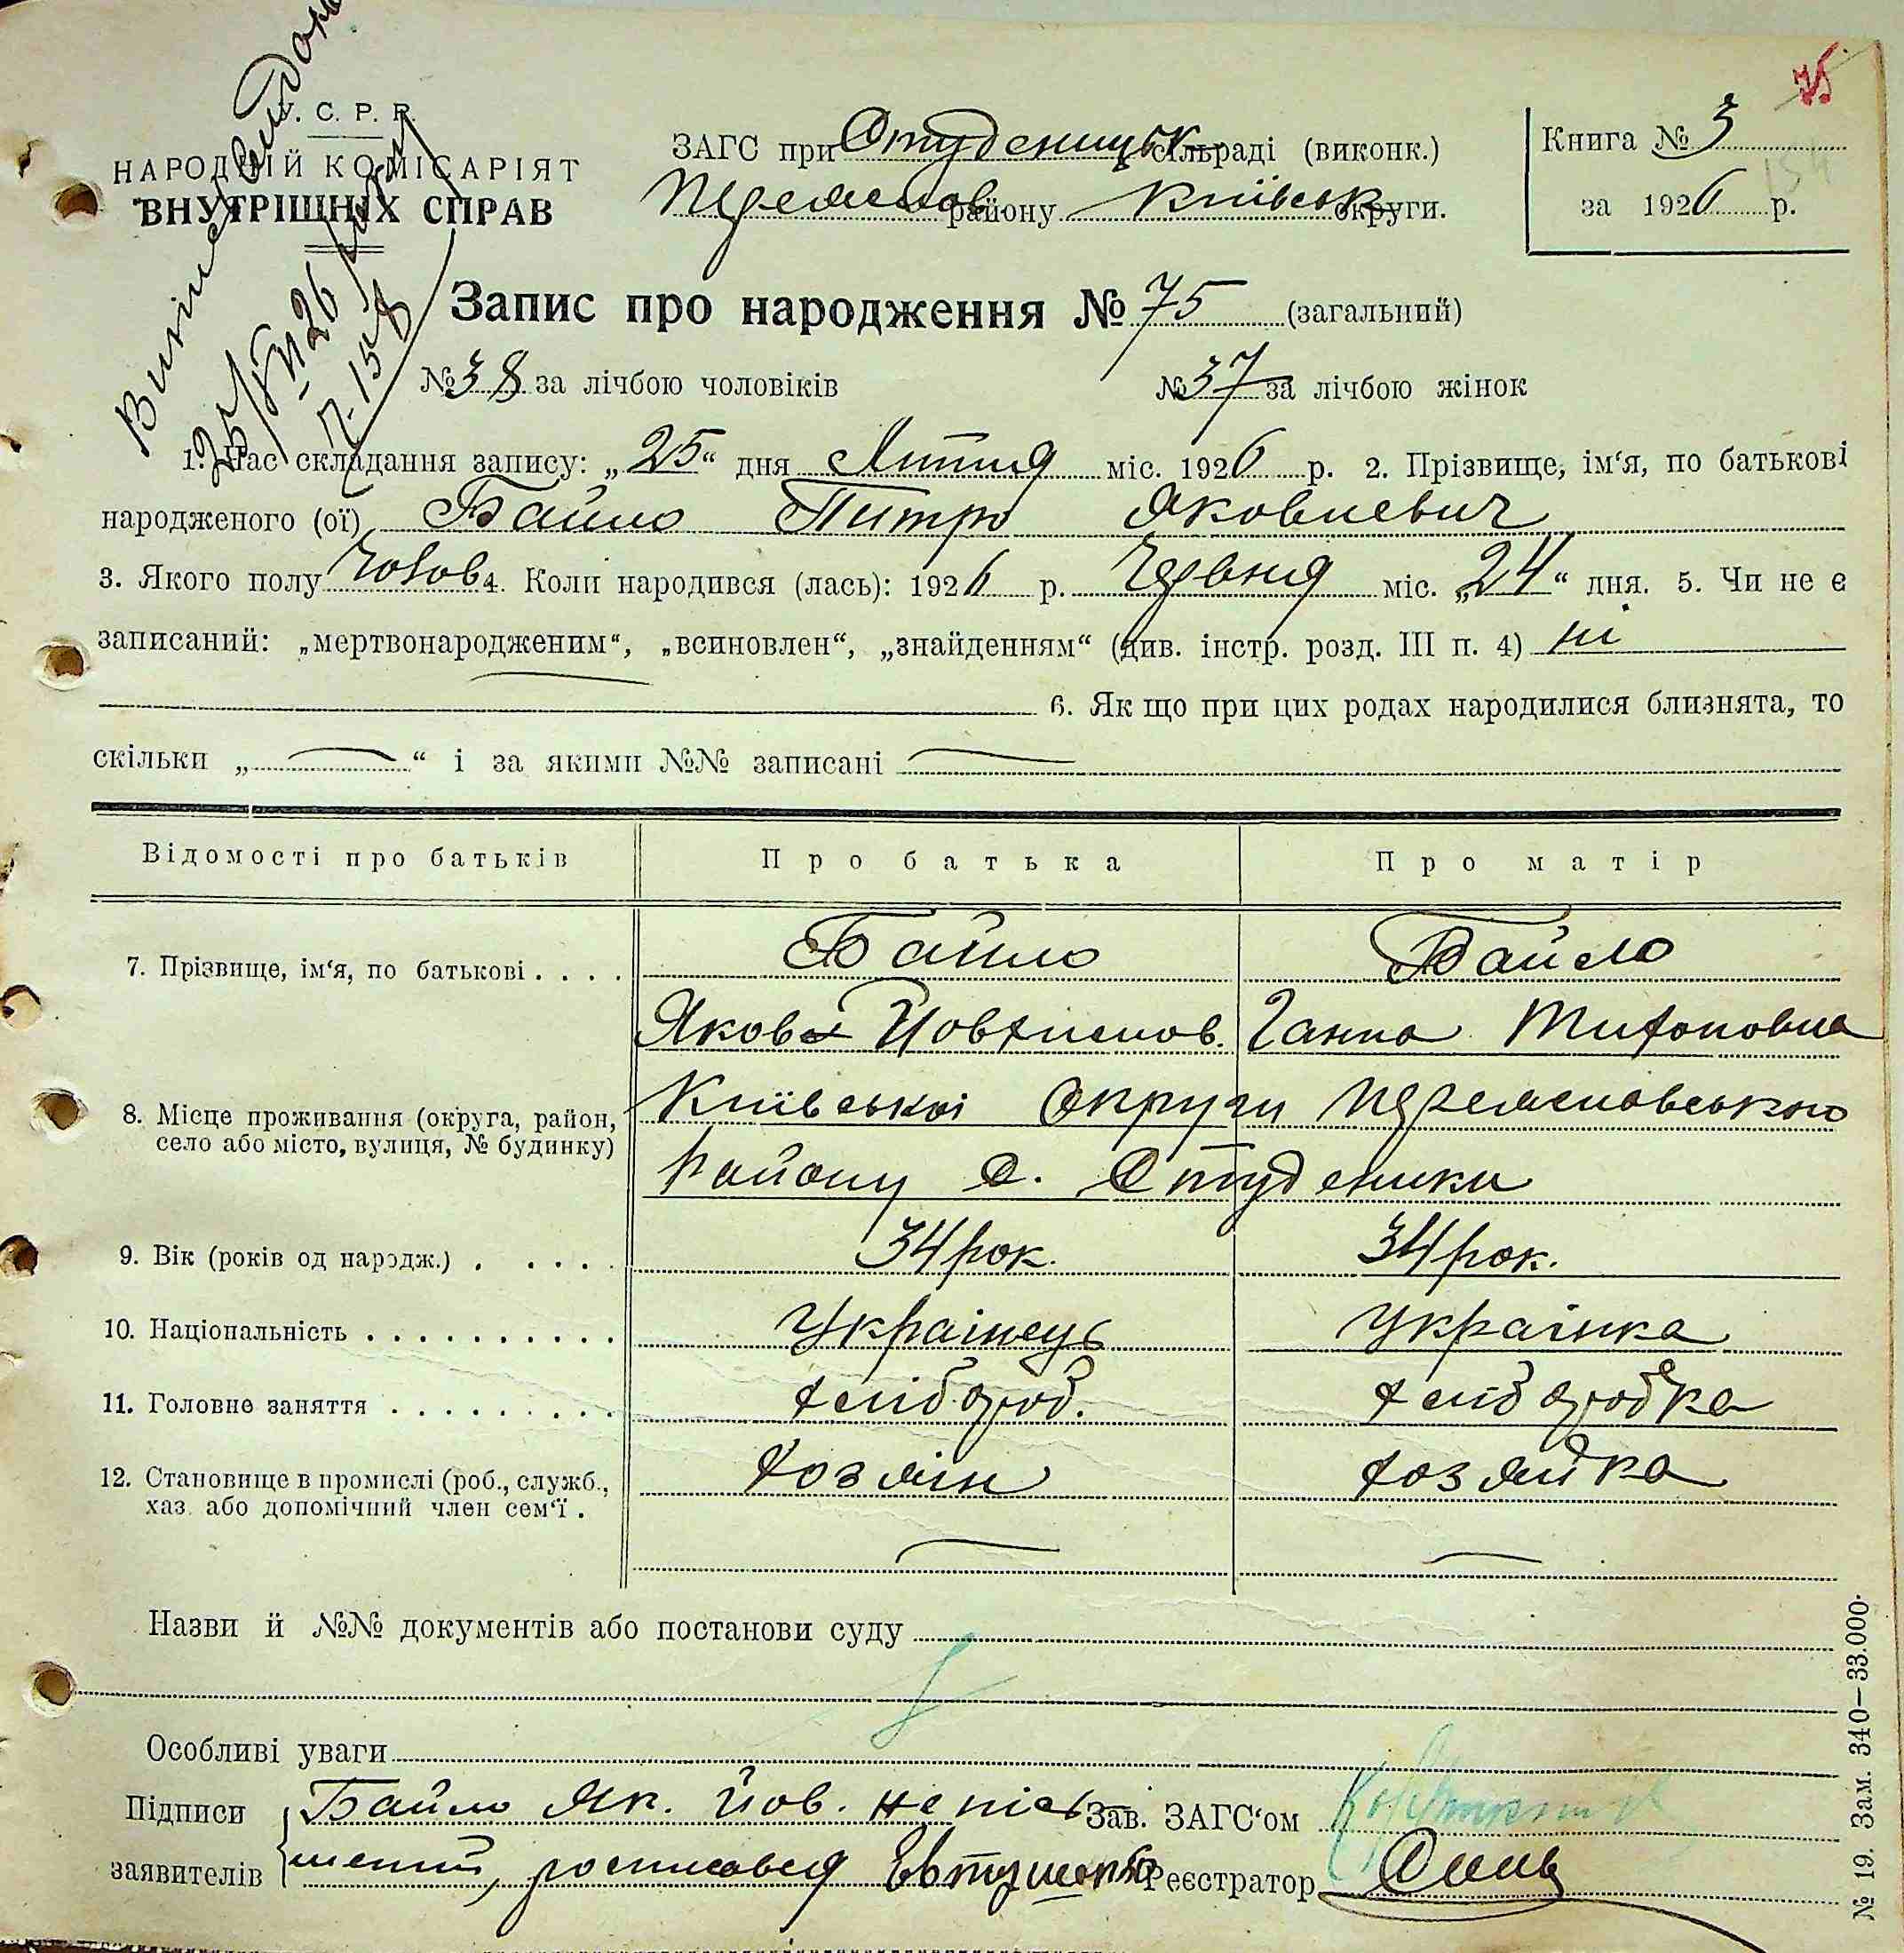 У. С. Р. Р.
НАРОДНІЙ КОМІСАРІЯТ
ВНУТРІШНІХ СПРАВ
ЗАГС при Студеницьк сільраді (виконк.)
району Київськ округи.
Книга № 3
за 1926 р.
75
154
Запис про народження № 75 (загальний)
№ 38 за лічбою чоловіків № 37 за лічбою жінок
1. Час складання запису: „25“ дня Липня міс. 1926 р. 2. Прізвище, ім‘я, по батькові
народженого (ої) Байло Питро Яковлевич
3. Якого полу Чолов 4. Коли народився (лась): 1926 р. Червня міс. „24“ дня. 5. Чи не є
записаний: „мертвонародженим“, „всиновлен“, „знайденням“ (див. інстр. розд. III п. 4) ні
6. Як що при цих родах народилися близнята, то
скільки „ “ і за якими №№ записані
Відомості про батьків Про батька Про матір
7. Прізвище, ім‘я, по батькові . . . . Байло Байло
Яков Йовхимов. Ганна Тихоновна
8. Місце проживання (округа, район,
село або місто, вулиця, № будинку)
Київської Округи
Району С. Студеники
9. Вік (років од народж.) . . . . . 34 рок. 34 рок.
10. Національність . . . . . . . . . . Українець Українка
11. Головне заняття . . . . . . . . . хлібороб. хліборобка
12. Становище в промислі (роб., служб.,
хаз. або допомічний член сем‘ї .
хозяін хозяйка
Назви й №№ документів або постанови суду
Особливі уваги
Підписи Байло Як. Йов. непісь Зав. ЗАГС‘ом
заявителів менний, росписався Реєстратор
№ 19. Зам. 340—33.000.